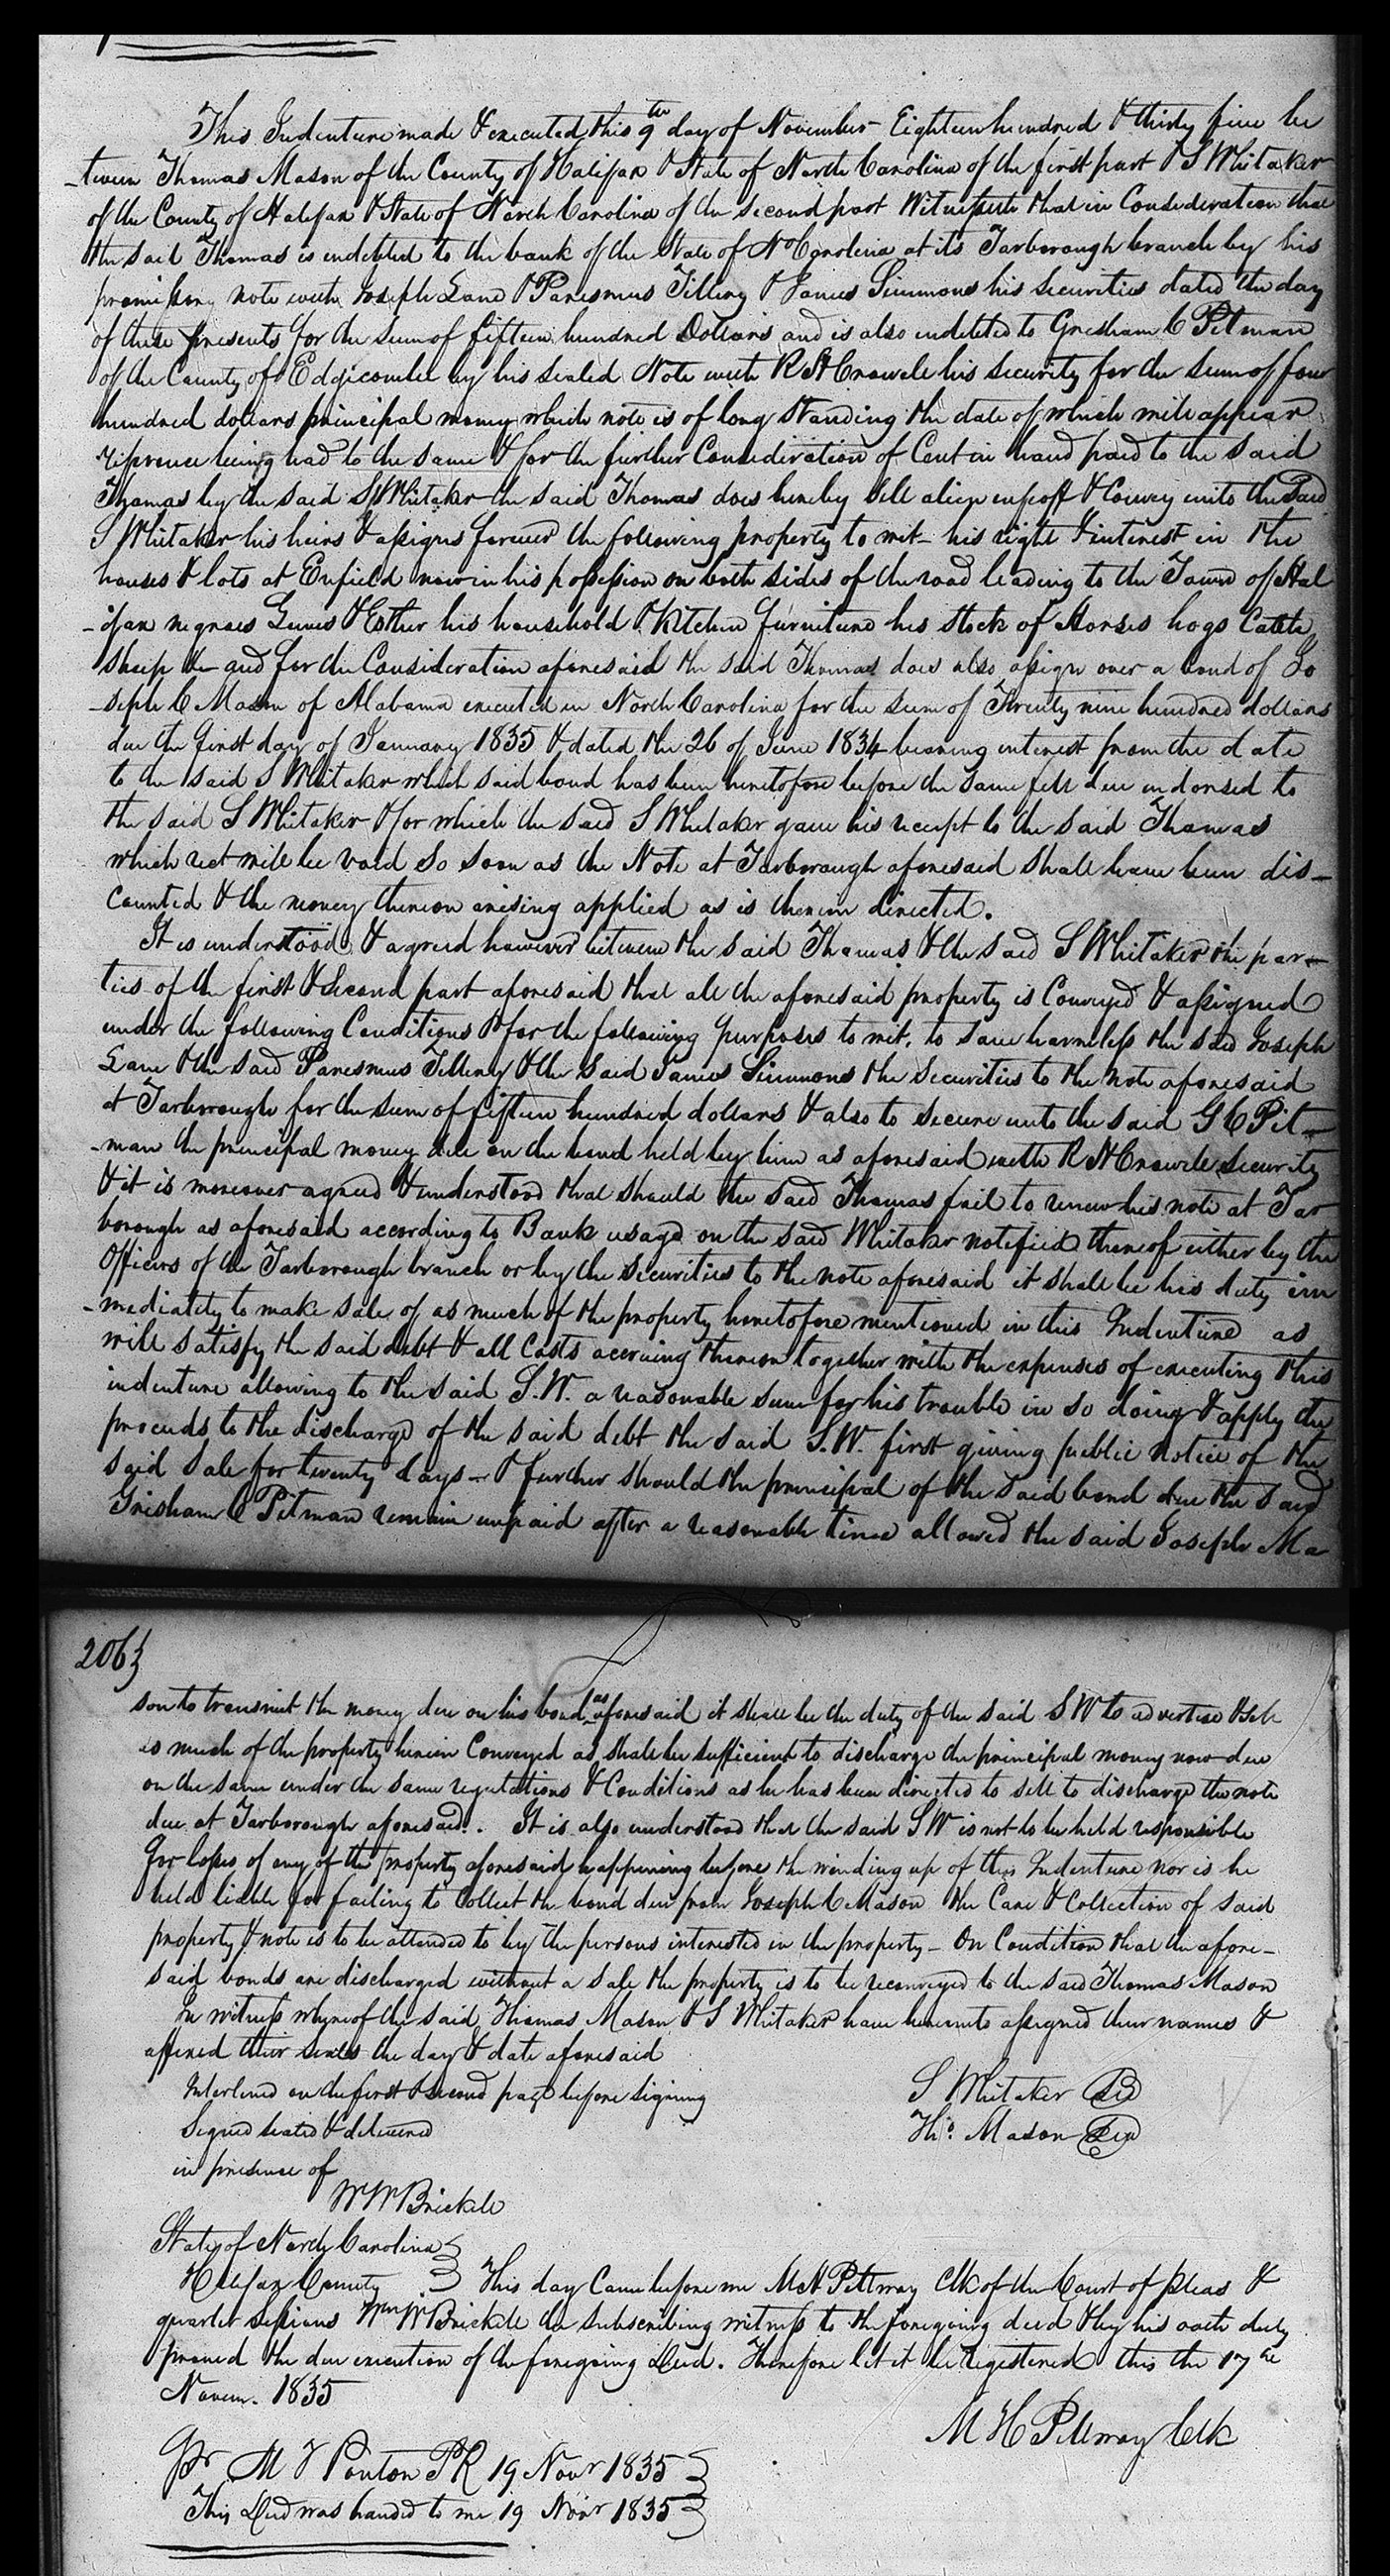 This Indenture made & executed this 9th day of November Eighteen hundred & thirty five be
-tween Thomas Mason of the County of Halifax & State of North Carolina of the first part & S Whitaker
of the County of Halifax & State of North Carolina of the second part Witnesseth that in Consideration that
the said Thomas is indebted to the bank of the State of No Carolina at its Tarborough branch by his
promissory note with Joseph Lane & Parismus Tillery & James Simmons his securities dated the day
of these presents for the sum of fifteen hundred Dollars and is also indebted to Gresham C Pitman
of the County of Edgicombe by his sealed Note with R H Crowell his security for the sum of four
hundred dollars principal money which note is of long standing the date of which will appear
referance being had to the same & for the further Consideration of Cent in hand paid to the said
Thomas by the said S Whitaker the said Thomas does hereby sell alien enfeoff & Convey unto the said
S Whitaker his heirs & assigns forever the following property to wit- his right & interest in the
houses & lots at Enfield now in his possession on both sides of the road leading to the Town of Hal
-ifax negroes & Esther his household & Kitchen furniture his stock of Horses hogs Cattle
sheep &c and for the Consideration aforesaid the said Thomas does also assign over a bond of Jo
-seph C Mason of Alabama executed in North Carolina for the sum of Twenty nine hundred dollars
due the first day of January 1835 & dated the 26 of June 1834 bearing interest from the date
to the said S Whitaker which said bond has been heretofore before the same fell due endorsed to
the said S Whitaker & for which the said S Whitaker gave his receipt to the said Thomas
which rect will be void so soon as the Note at Tarborough aforesaid shall have been dis-
counted & the money thereon arising applied as is therein directed.
It is understood & agreed however between the said Thomas & the said S Whitaker the par-
ties of the first & Second part aforesaid that all the aforesaid property is Conveyed & assigned
under the following Conditions & for the following purposes to wit, to save harmless the said Joseph
Lane & the said Paresmus Tillery & the said James Simmons the securities to the note aforesaid
at Tarborough for the sum of fifteen hundred dollars & also to secure unto the said G C Pit-
-man the principal money due on the bond held by him as aforesaid with R H Crowell security
& it is moreover agreed & understood that should the said Thomas fail to renew his note at Tar
borough as aforesaid according to Bank usage on the said Whitaker notified thereof either by the
Officers of the Tarborough branch or by the securities to the note aforesaid it shall be his duty im
-mediately to make sale of as much of the property heretofore mentioned in this Indenture as
will satisfy the said debt & all Costs accruing thereon together with the expenses of executing this
indenture allowing to the said S.W. a reasonable sum for his trouble in so doing & apply the
proceeds to the discharge of the said debt the said S.W. first giving public notice of the
said sale for twenty days - & further should the principal of the said bond due the said
Grisham C Pitman remain unpaid after a reasonable time allowed the said Joseph Ma
206}
son to transmit the money due on his bond as aforesaid it shall be the duty of the said S W to advertise & sell
as much of the property herein Conveyed as shall be sufficient to discharge the principal money now due
on the same under the same regulations & Conditions as he has been directed to sell to discharge the note
due at Tarborough aforesaid. It is also understood that the said S W is not to be held responsible
for losses of any of the property aforesaid happening before the winding up of this Indenture nor is he
held liable for failing to Collect the bond due from Joseph C Mason the Care & Collection of said
property & note is to be attended to by the persons interested in the property - On Condition that the afore-
said bonds are discharged without a sale the property is to be reconveyed to the said Thomas Mason
In witness whereof the said Thomas Mason & S Whitaker have hereunto assigned their names &
affixed their seals the day & date aforesaid
Interlined on the first & second page before signing
S Whitaker Seal
Signed sealed & delivered
Tho. Mason Seal
in presence of
W W Brickell
State of North Carolina }
Halifax County } This day Came before me M H Pettway Clk of the Court of pleas &
quarter Sessions Wm W Brickell the subscribing witness to the foregoing deed & by his oath duly
proved the due execution of the foregoing Deed. Therefore let it be registered this the 17th
Novem. 1835
M H Pettway Clk
Pr M F Ponton P R 19 Novr 1835 }
This Deed was handed to me 19 Novr 1835 }